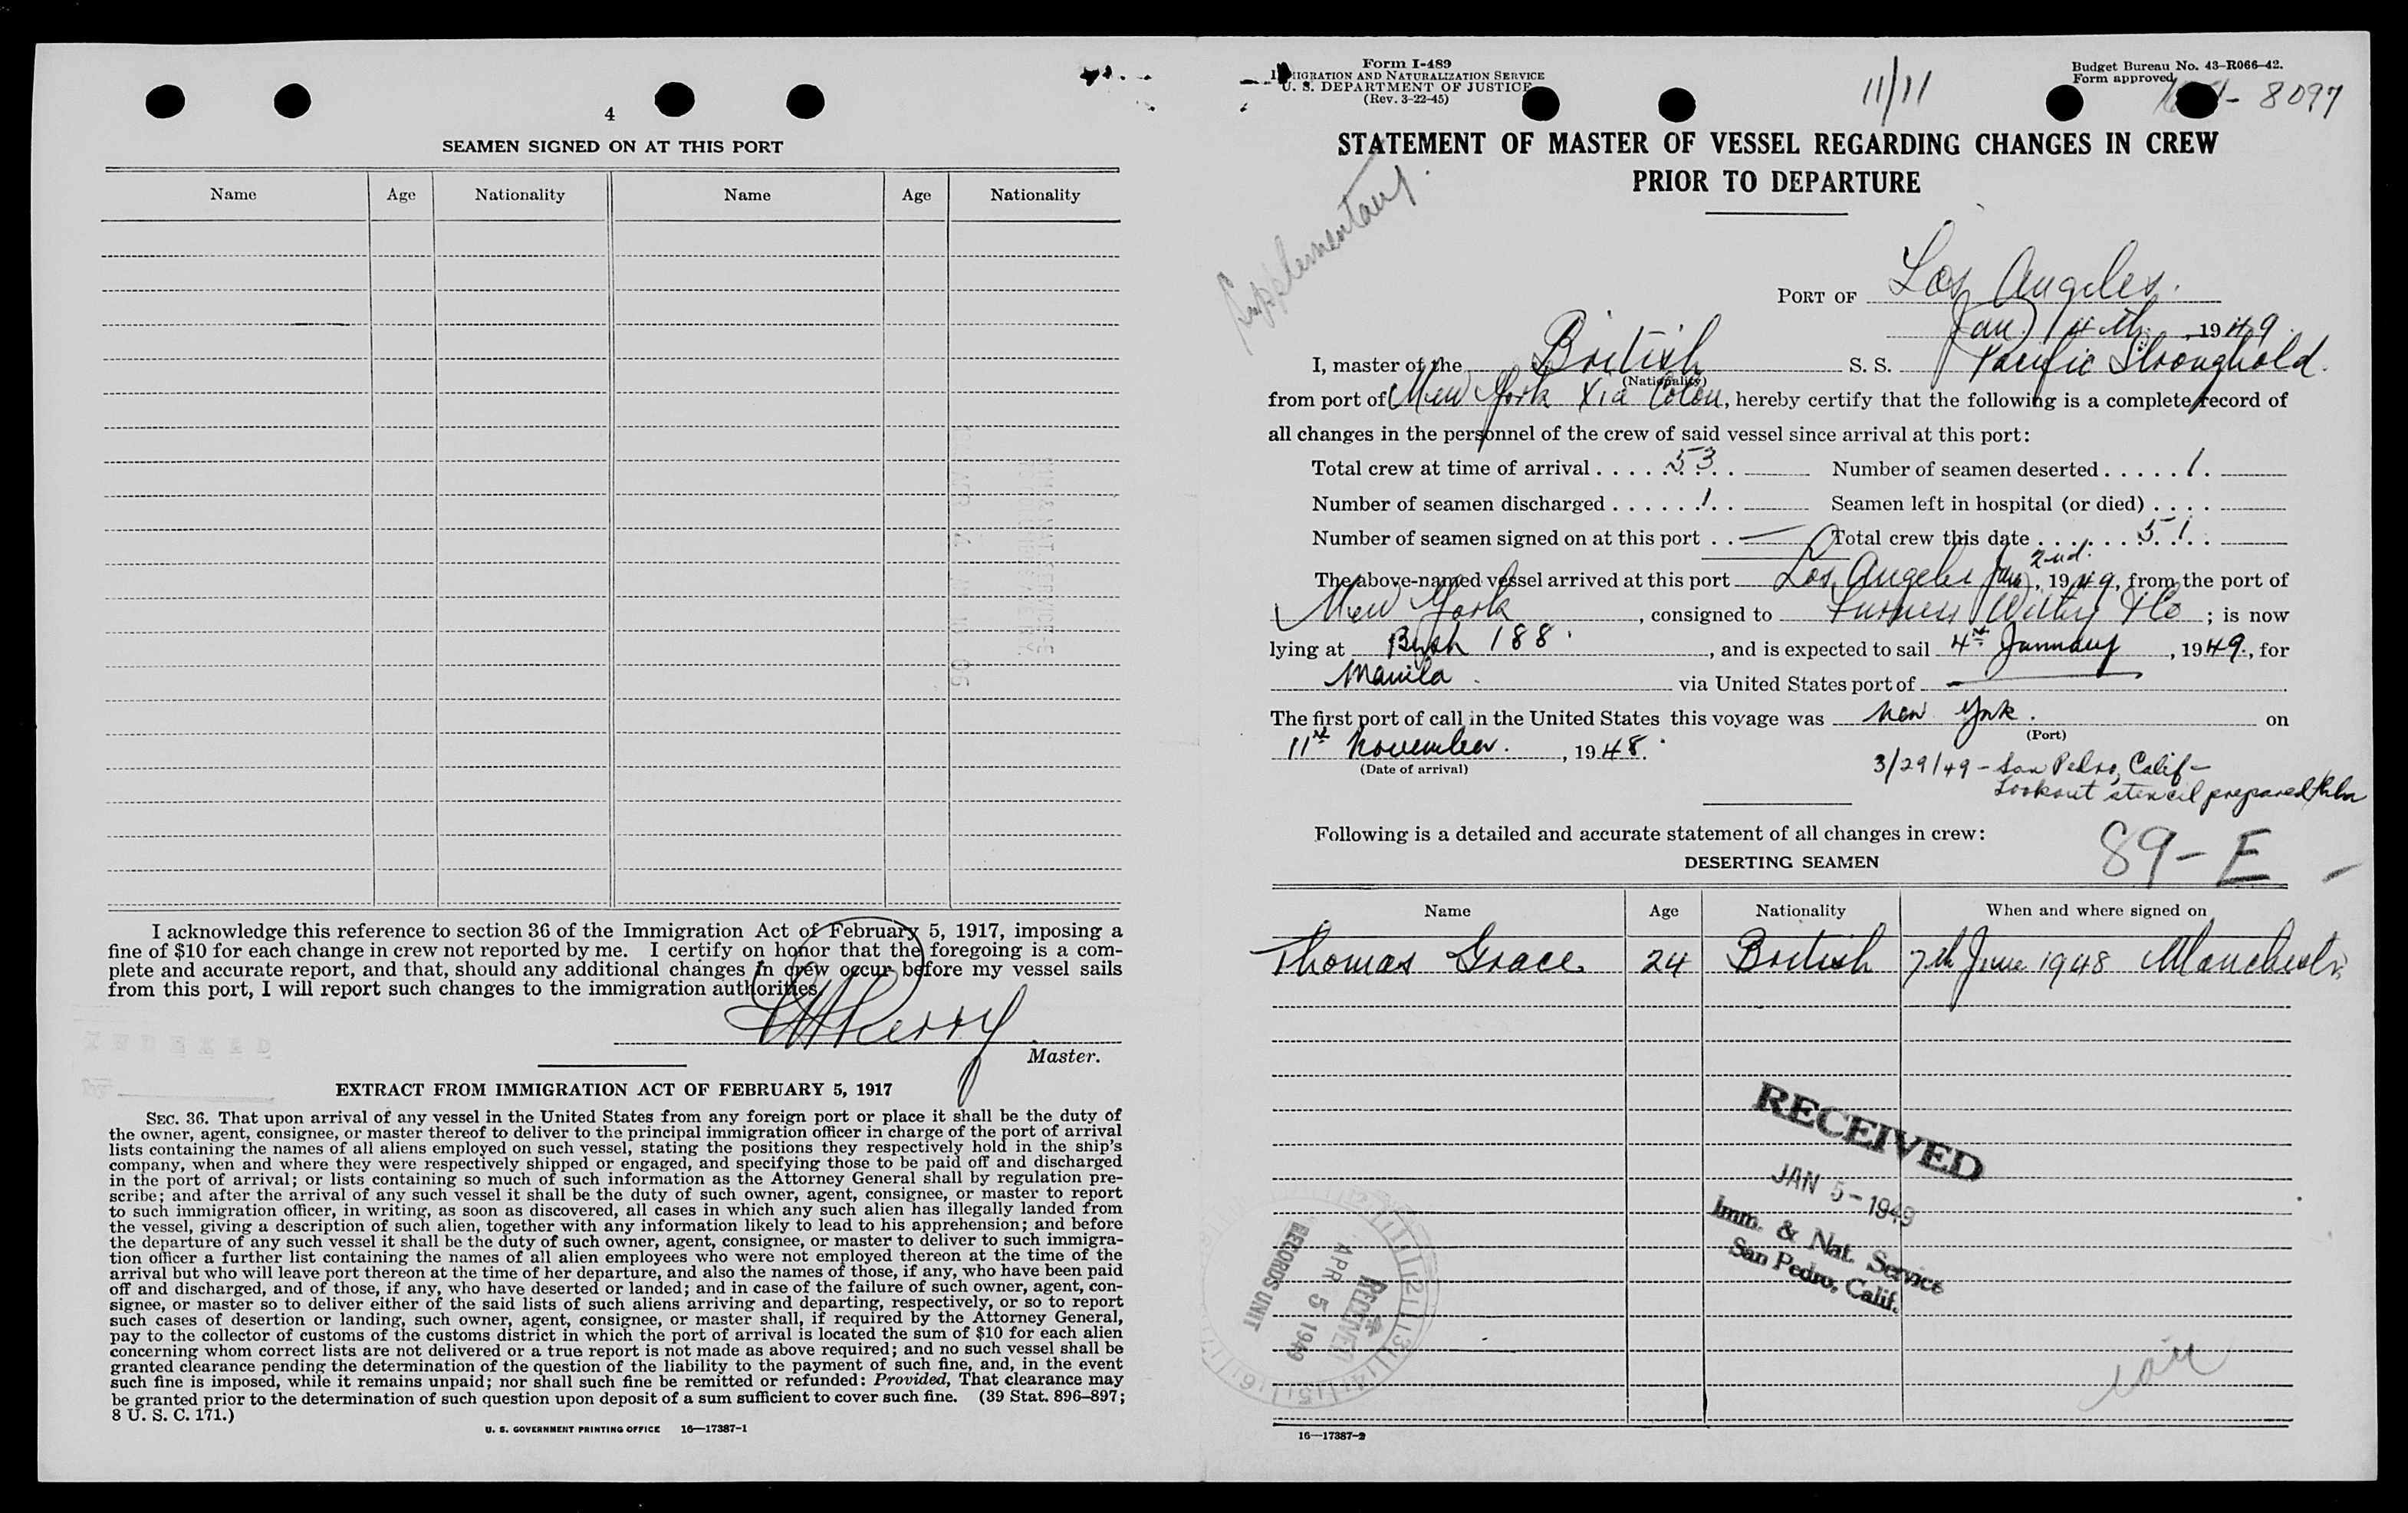 4
SEAMEN SIGNED ON AT THIS PORT
Name Age Nationality Name Age Nationality
I acknowledge this reference to section 36 of the Immigration Act of February 5, 1917, imposing a
fine of $10 for each change in crew not reported by me. I certify on honor that the foregoing is a com-
plete and accurate report, and that, should any additional changes in crew occur before my vessel sails
from this port, I will report such changes to the immigration authorities.
Master.
INDEXED
By
EXTRACT FROM IMMIGRATION ACT OF FEBRUARY 5, 1917
SEC. 36. That upon arrival of any vessel in the United States from any foreign port or place it shall be the duty of
the owner, agent, consignee, or master thereof to deliver to the principal immigration officer in charge of the port of arrival
lists containing the names of all aliens employed on such vessel, stating the positions they respectively hold in the ship's
company, when and where they were respectively shipped or engaged, and specifying those to be paid off and discharged
in the port of arrival; or lists containing so much of such information as the Attorney General shall by regulation pre-
scribe; and after the arrival of any such vessel it shall be the duty of such owner, agent, consignee, or master to report
to such immigration officer, in writing, as soon as discovered, all cases in which any such alien has illegally landed from
the vessel, giving a description of such alien, together with any information likely to lead to his apprehension; and before
the departure of any such vessel it shall be the duty of such owner, agent, consignee, or master to deliver to such immigra-
tion officer a further list containing the names of all alien employees who were not employed thereon at the time of the
arrival but who will leave port thereon at the time of her departure, and also the names of those, if any, who have been paid
off and discharged, and of those, if any, who have deserted or landed; and in case of the failure of such owner, agent, con-
signee, or master so to deliver either of the said lists of such aliens arriving and departing, respectively, or so to report
such cases of desertion or landing, such owner, agent, consignee, or master shall, if required by the Attorney General,
pay to the collector of customs of the customs district in which the port of arrival is located the sum of $10 for each alien
concerning whom correct lists are not delivered or a true report is not made as above required; and no such vessel shall be
granted clearance pending the determination of the question of the liability to the payment of such fine, and, in the event
such fine is imposed, while it remains unpaid; nor shall such fine be remitted or refunded: Provided, That clearance may
be granted prior to the determination of such question upon deposit of a sum sufficient to cover such fine. (39 Stat. 896–897;
8 U. S. C. 171.)
U. S. GOVERNMENT PRINTING OFFICE 16—17387-1
Form I-489
IMMIGRATION AND NATURALIZATION SERVICE
U. S. DEPARTMENT OF JUSTICE
(Rev. 3-22-45)
11/11
Budget Bureau No. 43-R066-42.
Form approved
- 8097
STATEMENT OF MASTER OF VESSEL REGARDING CHANGES IN CREW
PRIOR TO DEPARTURE
Supplementary.
PORT OF Los Angeles.
Jan. 4th, 1949
I, master of the British S. S. Pacific Stronghold.
(Nationality)
from port of New York Via Colon, hereby certify that the following is a complete record of
all changes in the personnel of the crew of said vessel since arrival at this port:
Total crew at time of arrival 53 Number of seamen deserted 1
Number of seamen discharged 1 Seamen left in hospital (or died)
Number of seamen signed on at this port — Total crew this date 51
The above-named vessel arrived at this port Los Angeles Jan 2nd, 1949, from the port of
New York, consigned to Furness Withy & Co; is now
lying at Berth 188, and is expected to sail 4th January, 1949, for
Manila. via United States port of —
The first port of call in the United States this voyage was New York. on
(Port)
11th November., 1948.
(Date of arrival)
3/29/49 - San Pedro, Calif -
Lookout stencil prepared
Following is a detailed and accurate statement of all changes in crew:
89-E
DESERTING SEAMEN
Name Age Nationality When and where signed on
Thomas Grace 24 British 7th June 1948 Manchester
RECEIVED
JAN 5-1949
Imm. & Nat. Service
San Pedro, Calif.
RECEIVED
APR 5 1949
RECORDS UNIT
16—17387-2